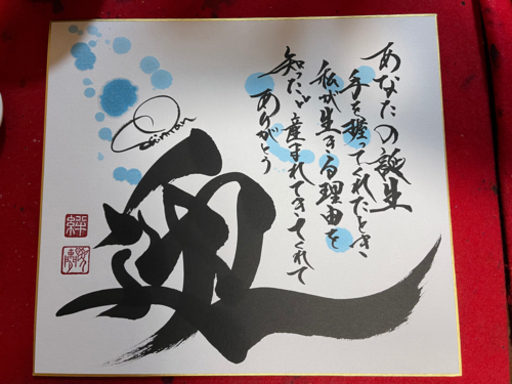 あなたの誕生
手を握ってくれたとき
私が生きる理由を
知った、産まれてきてくれて
ありがとう
絆